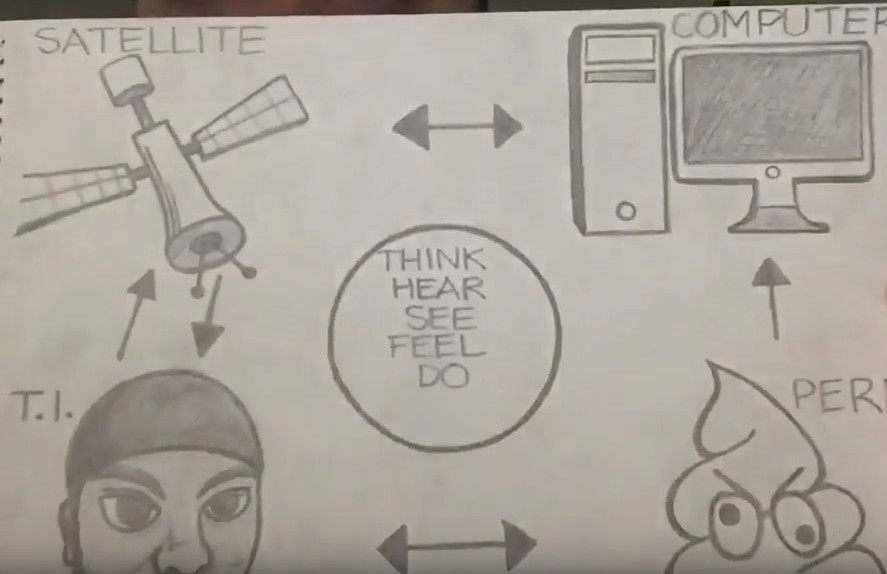 SATELLITE
COMPUTER
THINK
HEAR
SEE
FEEL
DO
T.I.